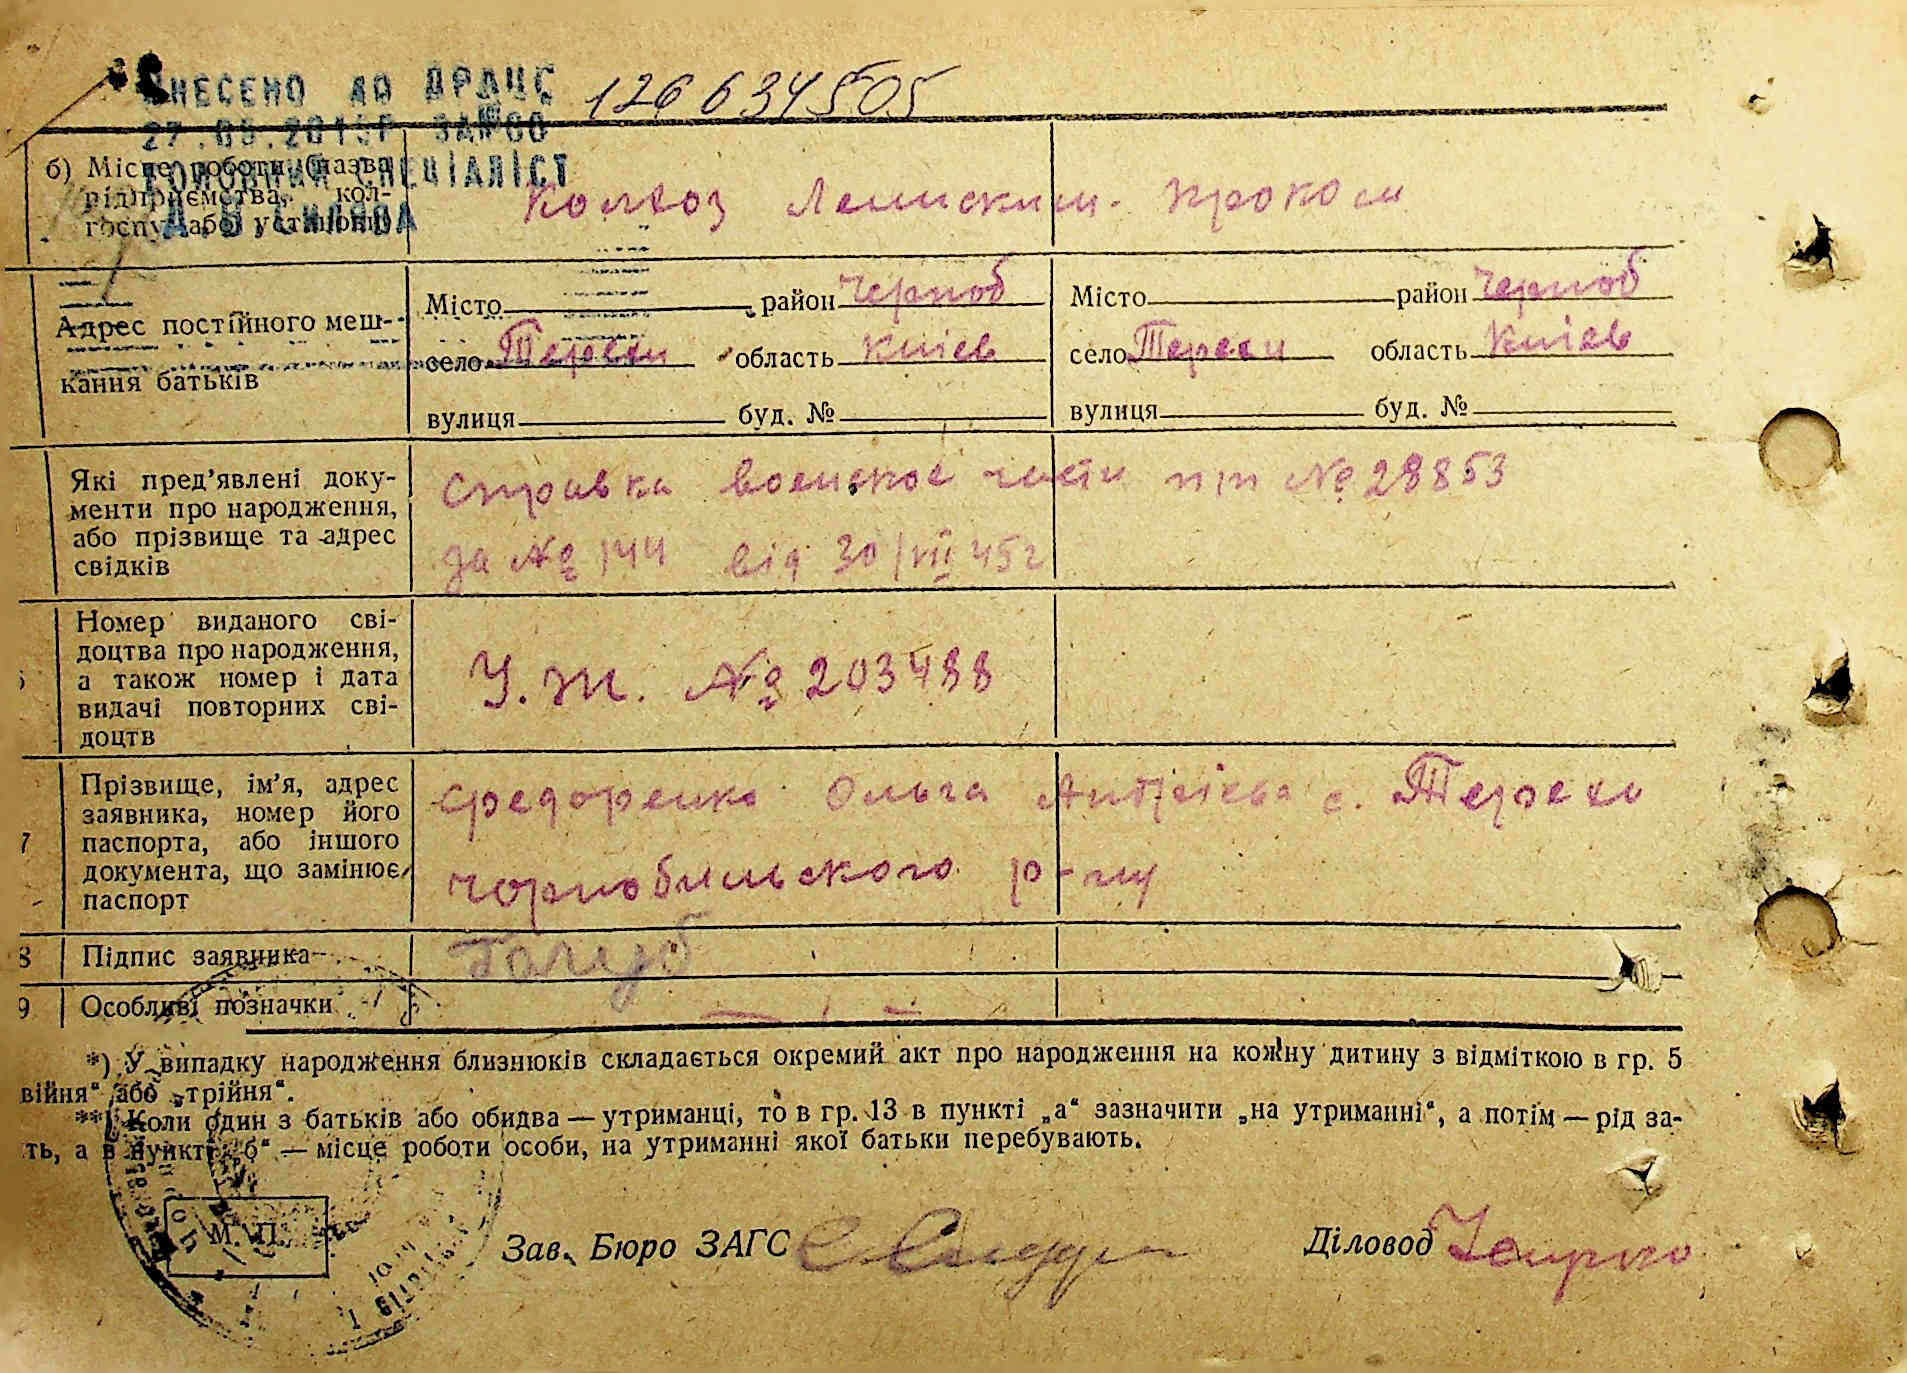 ВНЕСЕНО ДО ДРАЦС 126634505
27.05.2015Р
ГОЛОВНИЙ СПЕЦІАЛІСТ
б) Місце роботи (назва
підприємства, кол-
госпу або установи)
Колгоз Ленінським
Адрес постійного меш-
кання батьків
Місто район Черноб
село Терехи область Київ
вулиця буд. №
Місто район Черноб
село Терехи область Київ
вулиця буд. №
Які пред’явлені доку-
менти про народження,
або прізвище та адрес
свідків
Справка воєнскоє части п/п № 28853
за № 144 від 30/VII 45г
Номер виданого сві-
доцтва про народження,
а також номер і дата
видачі повторних сві-
доцтв
У.Ж. № 203488
7 Прізвище, ім’я, адрес
заявника, номер його
паспорта, або іншого
документа, що замінює
паспорт
Федоренко Ольга с. Терехи
Чорнобильського р-ну
8 Підпис заявника
9 Особливі позначки
*) У випадку народження близнюків складається окремий акт про народження на кожну дитину з відміткою в гр. 5
війня“ або „трійня“.
**) Коли один з батьків або обидва — утриманці, то в гр. 13 в пункті „а“ зазначити „на утриманні“, а потім — рід за-
ть, а в пункті „б“ — місце роботи особи, на утриманні якої батьки перебувають.
М. П.
Зав. Бюро ЗАГС
Діловод